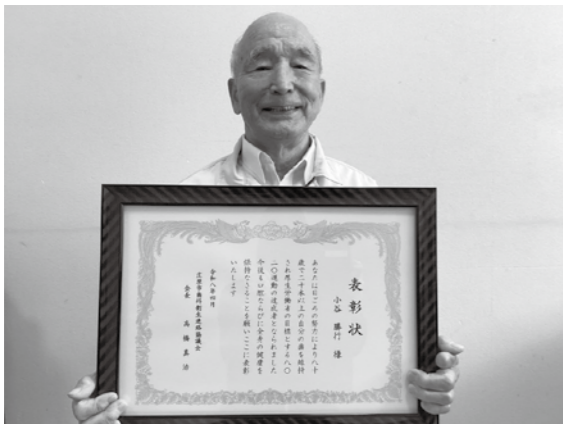 表彰状
小谷 勝行 様
あなたは日ごろの努力により八十
歳で二十本以上の自分の歯を維持
され厚生労働省の目標とする八〇
二〇運動の達成者となられました
今後も口腔ならびに全身の健康を
維持なさることを願いここに表彰
いたします
令和八年四月
庄原市歯科衛生連絡協議会
会長 高橋 真治